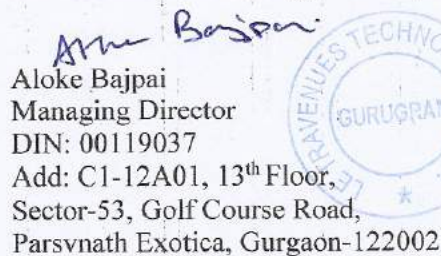 Aloke Bajpai
Aloke Bajpai
Managing Director
DIN: 00119037
Add: C1-12A01, 13th Floor,
Sector-53, Golf Course Road,
Parsvnath Exotica, Gurgaon-122002
GURUGRAM